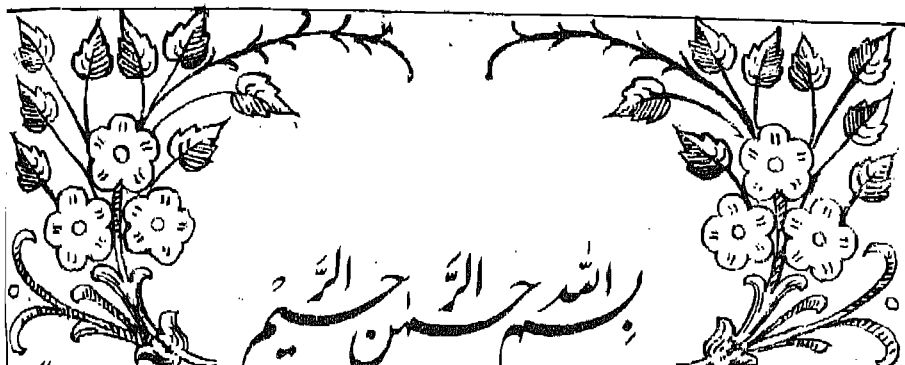 بِسم اللّٰه الرَّحمٰن الرَّحیْم